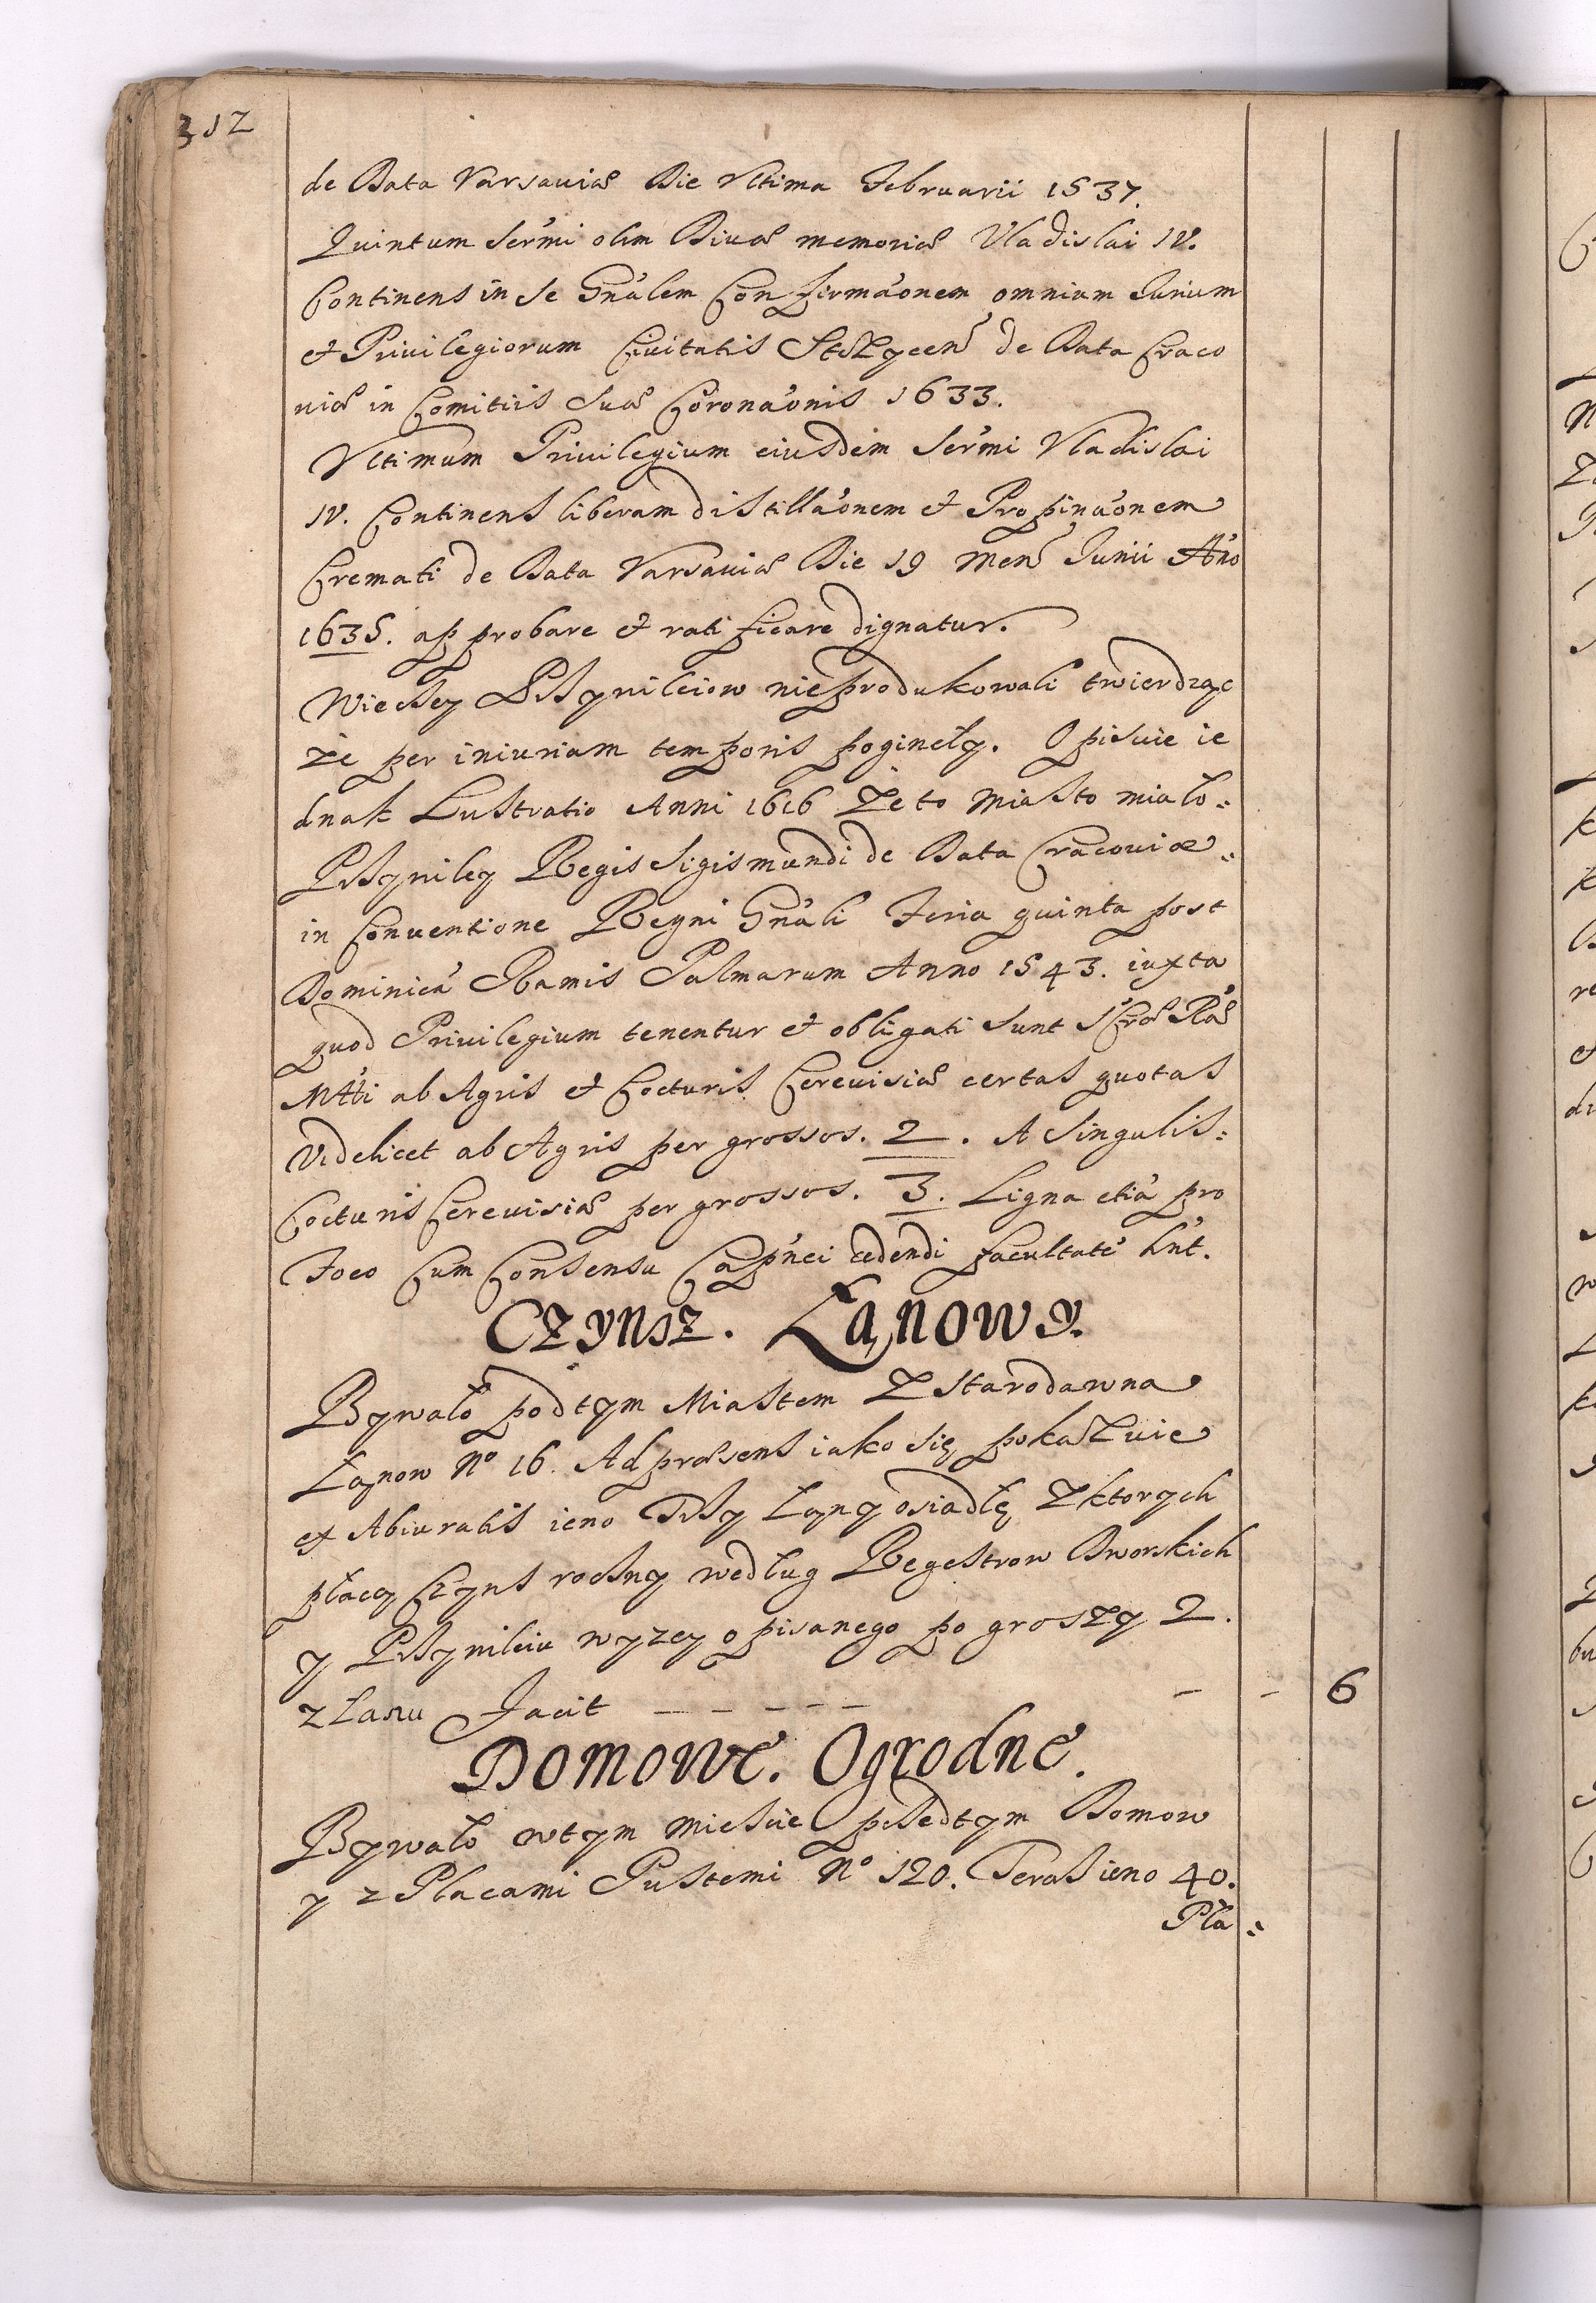 312
de Data Varsaviæ Die Ultima Februarii 1537.
Quintum Serm̃i olim Divæ memoriæ Vladislai IV.
Continens in Se Gnãlem Confirmaõnem omnium Iurium
et Privilegiorum Civitatis Stężycen̄ de Data Craco
uiæ in Comitiis Suæ Coronaõnis 1633.
Vltimum Privilegium eiusdem Serm̃i Vladislai
IV. Continens liberam distillaõnem et Propinaõnem
Cremati de Data Varsaviæ Die 19 Men̄ Iunii Añno
1635. approbare et ratificare dignatur.
Wiecey Przywileiow nieprodukowali twierdząc
że per iniuriam temporis poginęły. Opisuie ie
dnak Lustratio Anni 1616 Że to Miasto miało=
Przywiley Regis Sigismundi de Data Cracouiæ=
in Conuentione Regni Gnãli Feria quinta post
Dominicã Ramis Palmarum Anno 1543. iuxta
quod Privilegium tenentur et obligati sunt S̃cræ R̃æ
Mtti ab Agris et Cocturis Cereuisiæ certas quotas
Videlicet ab Agris per grossos. 2. A Singulis=
Cocturis Cereuisiæ per grossos. 3. Ligna etiã pro
Foco Cum Consensu Capñei cædendi facultatẽ hñt.
Czynsz. Łanowy.
Bywało podtym Miastem Z starodawna
Łanow No 16. Ad præsens iako się pokaZuie
ex Abiuratis ieno Trzy Łany osiadłę Zktorych
płacą Czyns roczny według Regestrow Dworskich
y Przywileiu wyzey opisanego po groszy 2.
z Łanu Facit - - - - - - - 6
Domowe. Ogrodne.
Bywało wtym Miescie przedtym Domow
y z Placami Pustemi No 120. Teras ieno 40.
Pła=